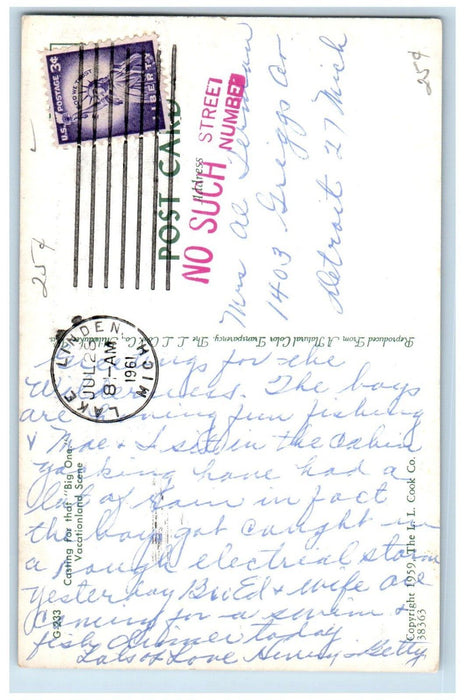 U.S. POSTAGE 3¢
IN GOD WE TRUST
LIBERTY
POST CARD
Address
NO SUCH STREET
NUMBER
25¢
25¢
Mrs Al
1403 Griggs Av.
Detroit 27 Mich
LAKE LINDEN, MICH.
JUL 25
8 - AM
1961
Reproduced From A Natural Color Transparency, The L. L. Cook Co., Milwaukee
Greetings for the
Wilderness. The boys
are having fun fishing
Mae & I sit in the cabin
yakking have had a
lot of rain in fact
the boys got caught in
a rough electrical storm
yesterday Bro Ed & wife are
coming for a swim &
fish dinner today.
Lots of Love Henry & Betty
G-233
Casting for that "Big One"
Vacationland Scene
Copyright 1959, The L. L. Cook Co.
38363